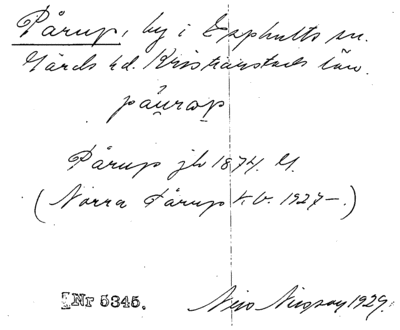 Pårup, by i Epphults sn.
Gärds hd. Kristianstads län.
påurəp
Pårup jb 1874. M.
(Norra Pårup k.b. 1927-.)
Nr 5345.
1929.